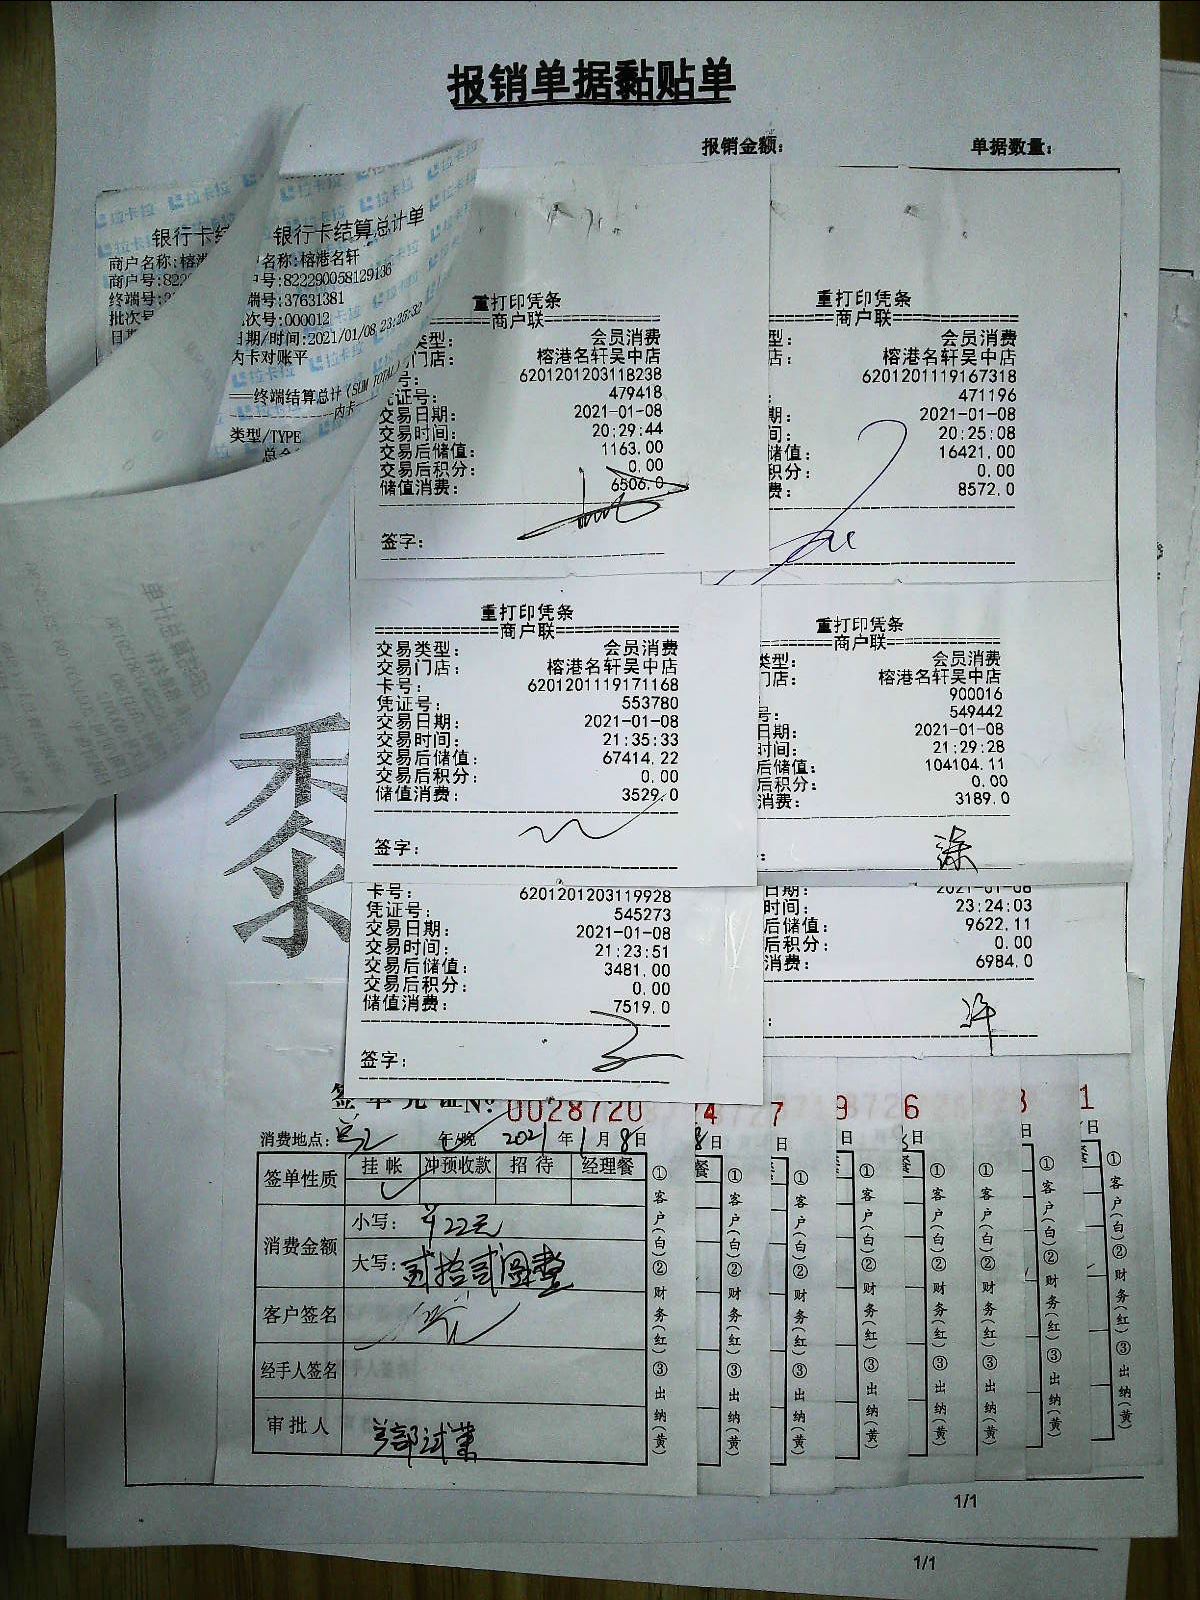 报销单据黏贴单
报销金额：
单据数量：
银行卡结算总计单
名称:榕港名轩
号:822290058129136
端号:37631381
次号:000012
日期/时间:2021/01/08 23:25:32
内卡对账平
——终端结算总计(SUM TOTAL)
内卡
类型/TYPE
银行卡结
商户名称:榕港
商户号:822
终端号:
批次号
重打印凭条
商户联
类型： 会员消费
门店： 榕港名轩吴中店
号： 6201201203118238
凭证号： 479418
交易日期： 2021-01-08
交易时间： 20:29:44
交易后储值： 1163.00
交易后积分： 0.00
储值消费： 6506.0
签字：
重打印凭条
商户联
型： 会员消费
店： 榕港名轩吴中店
6201201119167318
471196
期： 2021-01-08
间： 20:25:08
储值： 16421.00
积分： 0.00
费： 8572.0
重打印凭条
商户联
交易类型： 会员消费
交易门店： 榕港名轩吴中店
卡号： 6201201119171168
凭证号： 553780
交易日期： 2021-01-08
交易时间： 21:35:33
交易后储值： 67414.22
交易后积分： 0.00
储值消费： 3529.0
签字：
重打印凭条
商户联
类型： 会员消费
门店： 榕港名轩吴中店
900016
号： 549442
日期： 2021-01-08
时间： 21:29:28
后储值： 104104.11
后积分： 0.00
消费： 3189.0
涂
卡号： 6201201203119928
凭证号： 545273
交易日期： 2021-01-08
交易时间： 21:23:51
交易后储值： 3481.00
交易后积分： 0.00
储值消费： 7519.0
签字：
日期： 2021-01-08
时间： 23:24:03
后储值： 9622.11
后积分： 0.00
消费： 6984.0
许
签单凭证 № 0028720
4 7 9 6 3 1
消费地点： 午/晚 2021年1月8日
8日 日 日 日 日 日
签单性质 挂帐 冲预收款 招待 经理餐
消费金额 小写： ¥22元
大写： 贰拾贰圆整
客户签名
经手人签名
审批人
①客户(白)②财务(红)③出纳(黄)
①客户(白)②财务(红)③出纳(黄)
①客户(白)②财务(红)③出纳(黄)
①客户(白)②财务(红)③出纳(黄)
①客户(白)②财务(红)③出纳(黄)
①客户(白)②财务(红)③出纳(黄)
①客户(白)②财务(红)③出纳(黄)
①客户(白)②财务(红)③出纳(黄)
1/1
1/1